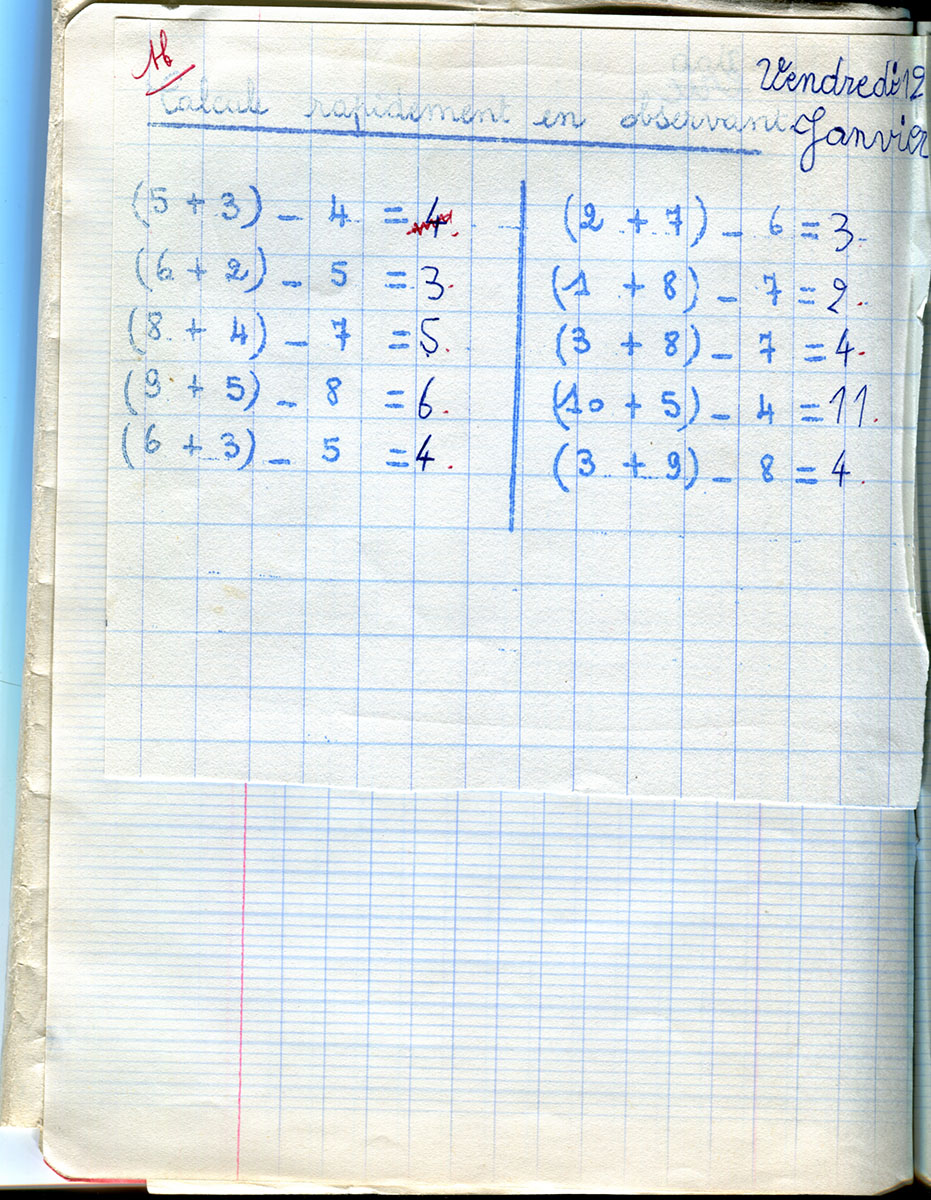 Tb
Vendredi 12
Janvier
Calcule rapidement en observant
(5 + 3) - 4 = 4.
(6 + 2) - 5 = 3.
(8 + 4) - 7 = 5.
(9 + 5) - 8 = 6.
(6 + 3) - 5 = 4.
(2 + 7) - 6 = 3.
(1 + 8) - 7 = 2.
(3 + 8) - 7 = 4.
(10 + 5) - 4 = 11.
(3 + 9) - 8 = 4.